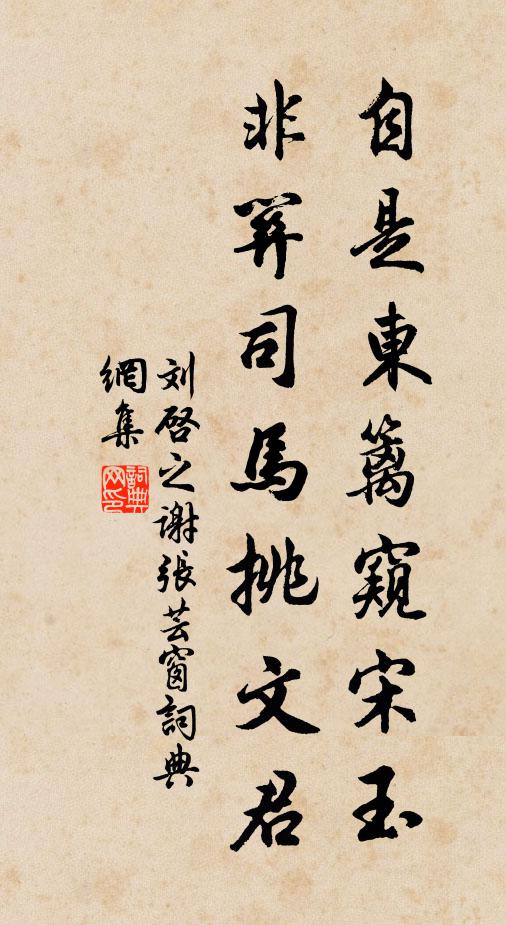 自是東籬窺宋玉
非關司馬挑文君
刘啓之謝張芸窗詞典
網集
詞典網印